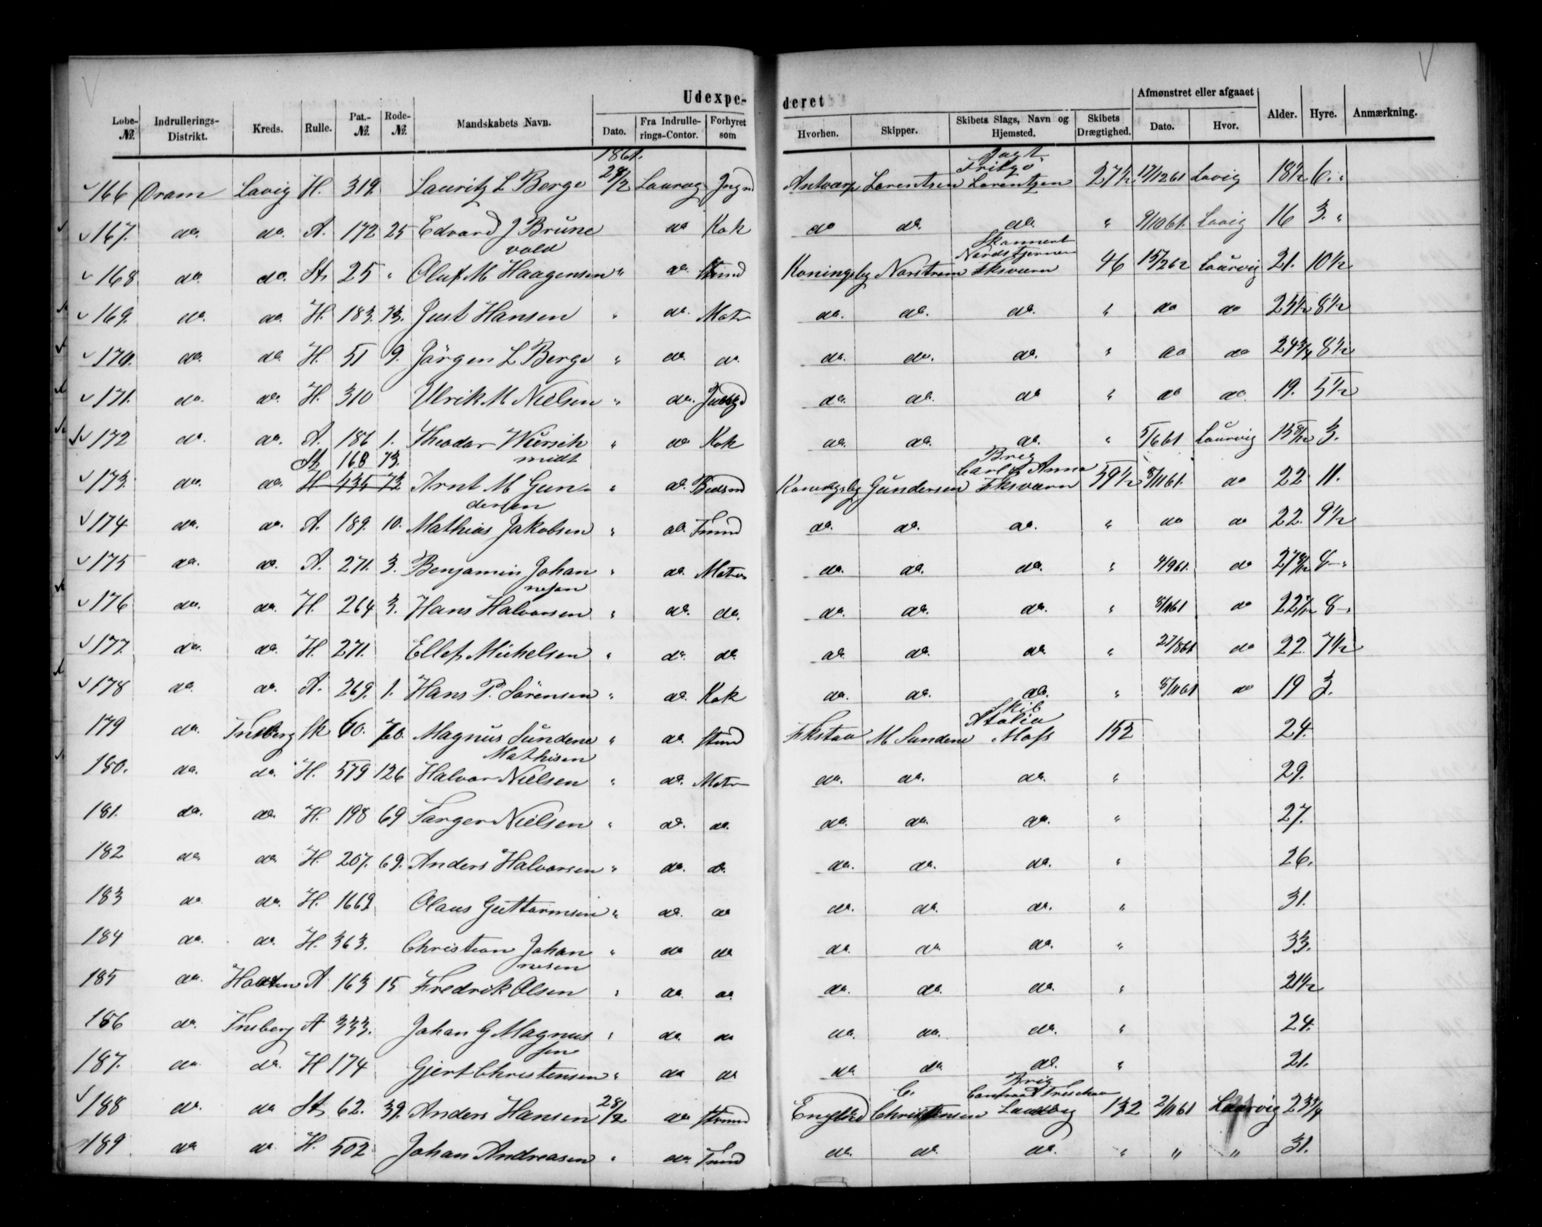 Udexpederet
Lobe-№. Indrullerings-Distrikt. Kreds. Rulle. Pat.-№. Rode-№. Mandskabets Navn. Dato. Fra Indrullerings-Contor. Forhyret som Hvorhen. Skipper. Skibets Slags, Navn og Hjemsted. Skibets Drægtighed. Afmønstret eller afgaaet Dato. Hvor. Alder. Hyre. Anmærkning.
1861. Jagt
166 Dram Lavig H. 312 Lauritz L Berge 28/2 Laurvg Jngd Antverp Lorentsen Fritzö Lorentzen 27½ 17/12 61 Lavig 18½ 6 "
167. do. do. A. 172 25 Edvard J Brunevold do Kok do do. do. " 9/10 61. Lavig 16 3. "
168 do. do. St 25 " Oluf M Haagensen " do. Stmd Koningsby Norstrem Skonnert Nordstjernen Fksværn 46 15/2 62 Laurvig 21. 10½
169. do. do. H. 183. 73. Just Hansen " do. Mat do. do. do. " do do 25½ 8½
170. do. do H. 51 9. Jörgen L Berge " do. do. do. do. do. " do do 24¾ 8½
171. do. do. H. 310 Ulrik M Nielsen " do. do. do. do " do do. 19. 5½
172 do. do. A. 186 1. Theodor " do Kok do. do. do. " 5/6 61 Laurvig 3.
St 168 73. Brig
173. do. do. H 435 73 Arnt M Gundersen " do. Koningsby Gundersen Carl & Anna Fksværn 59½ 8/11 61. do 22 11.
174 do. do. A. 189. 10. Mathias Jakobsen " do. Tmmd do. do. do. " do do 22. 9½
175 do. do. A. 271. 3. Benjamin Johannesen " do. Matr do. do. do. " 4/9 61. do 8 "
176 do. do. H. 264 3. Hans Halvorsen " do. do. do. do. do. " 8/11 61 do 8 "
177 do. do. H. 271. Ellef Mickelsen " do. do. do. do. do " 27/8 61 do 22. 7½
178 do. do. A. 269. 1. Hans P. Sörensen " do. Kok do. do. do. " 8/11 61 do 19 3.
179 do. Tnsberg St 60. 70. Magnus Sundene " do. Stmd Fkstad M Sundene Skib Atalia Moss 152 24.
180. do. do. H. 579 126 Halvor Mathisen Nielsen " do. Matr do. do. do. " 29.
181. do. do. H. 198 69 Targer Nielsen " do. do. do. do. do. " 27.
182 do do H. 207. 69. Anders Halvorsen " do. do. do. do. do. " 26.
183 do do. H. 1669. Olaus Guttormsen " do. do do. do. do. " 31.
184 do . do H. 363. Christian Johannesen " do do do. do do. " 33.
185 do. Holsten A 163 15 Fredrik Olsen " do do. do. do. do. " 21½
186 do. Tnsberg A 333. Johan G Magnussen " do do do. do. do. " 24.
187. do. do. H 174 Gjert Christensen " do do do do do. " 21.
188 do. do St 62. 39. Anders Hansen 28/2 do Stmmd Engeld C. Christensen Brig Laurvig 132 2/11 61 Laurvig 23¾
189. do do H. 502 Johan Andreasen " do. Tmmd do. do. do. " " " 31.